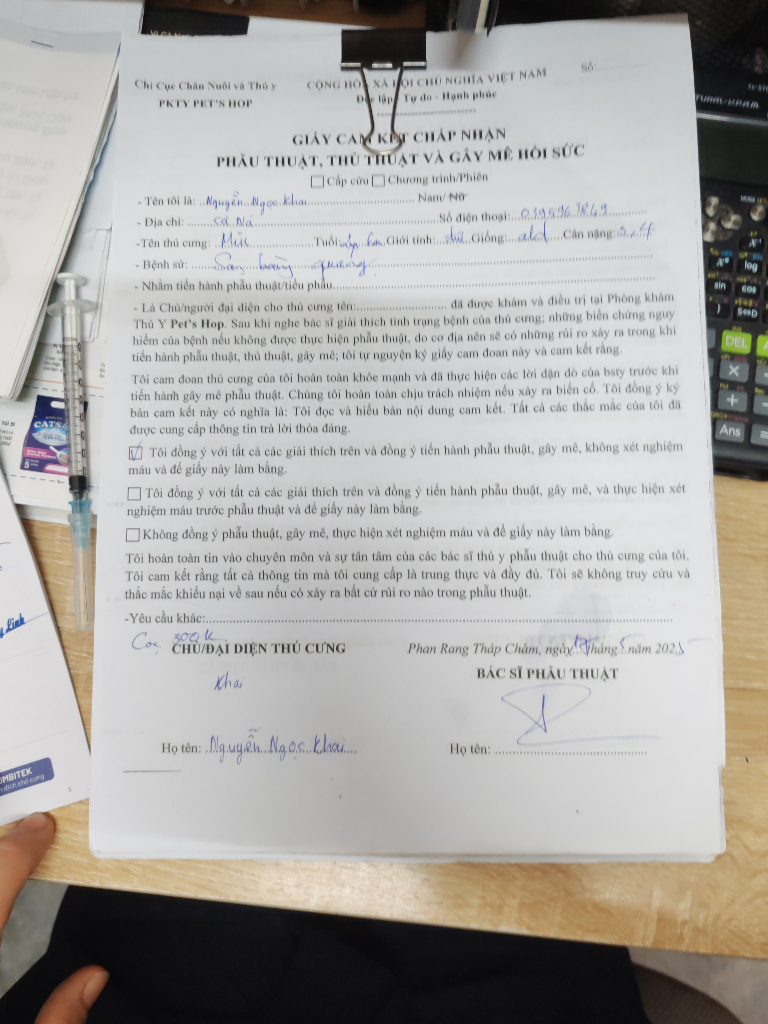 Chi Cục Chăn Nuôi và Thú y
PKTY PET'S HOP
CỘNG HÒA XÃ HỘI CHỦ NGHĨA VIỆT NAM
Độc lập - Tự do - Hạnh phúc
Số:
GIẤY CAM KẾT CHẤP NHẬN
PHẪU THUẬT, THỦ THUẬT VÀ GÂY MÊ HỒI SỨC
Cấp cứu Chương trình/Phiên
- Tên tôi là: Nguyễn Ngọc Khai Nam/ Nữ
- Địa chỉ: Cà Ná Số điện thoại: 0395963849
-Tên thú cưng: Mít Tuổi: Giới tính: Giống: ald Cân nặng: 3,4
- Bệnh sử: Sạn bàng quang
- Nhằm tiến hành phẫu thuật/tiểu phẫu
- Là Chủ/người đại diện cho thú cưng tên: đã được khám và điều trị tại Phòng khám
Thú Y Pet's Hop. Sau khi nghe bác sĩ giải thích tình trạng bệnh của thú cưng; những biến chứng nguy
hiểm của bệnh nếu không được thực hiện phẫu thuật, do cơ địa nên sẽ có những rủi ro xảy ra trong khi
tiến hành phẫu thuật, thủ thuật, gây mê; tôi tự nguyện ký giấy cam đoan này và cam kết rằng.
Tôi cam đoan thú cưng của tôi hoàn toàn khỏe mạnh và đã thực hiện các lời dặn dò của bsty trước khi
tiến hành gây mê phẫu thuật. Chúng tôi hoàn toàn chịu trách nhiệm nếu xảy ra biến cố. Tôi đồng ý ký
bản cam kết này có nghĩa là: Tôi đọc và hiểu bản nội dung cam kết. Tất cả các thắc mắc của tôi đã
được cung cấp thông tin trả lời thỏa đáng.
Tôi đồng ý với tất cả các giải thích trên và đồng ý tiến hành phẫu thuật, gây mê, không xét nghiệm
máu và để giấy này làm bằng.
Tôi đồng ý với tất cả các giải thích trên và đồng ý tiến hành phẫu thuật, gây mê, và thực hiện xét
nghiệm máu trước phẫu thuật và để giấy này làm bằng.
Không đồng ý phẫu thuật, gây mê, thực hiện xét nghiệm máu và để giấy này làm bằng.
Tôi hoàn toàn tin vào chuyên môn và sự tân tâm của các bác sĩ thú y phẫu thuật cho thú cưng của tôi.
Tôi cam kết rằng tất cả thông tin mà tôi cung cấp là trung thực và đầy đủ. Tôi sẽ không truy cứu và
thắc mắc khiếu nại về sau nếu có xảy ra bất cứ rủi ro nào trong phẫu thuật.
-Yêu cầu khác:
Cọc 300k
CHỦ/ĐẠI DIỆN THÚ CƯNG
Khai
Họ tên: Nguyễn Ngọc Khai
Phan Rang Tháp Chàm, ngày tháng 5 năm 2025
BÁC SĨ PHẪU THUẬT
Họ tên:
CATS
Linh
OMBITEK
DEL
log
sin
cos
S⇔D
Ans